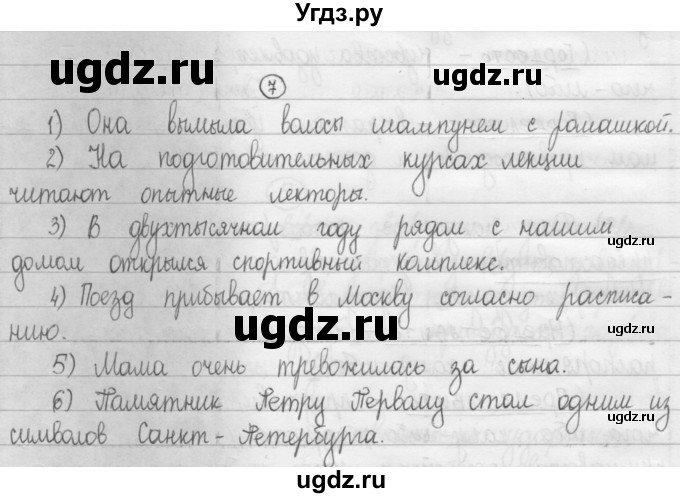 Угдз.ру
ugdz.ru
7
ugdz.ru
1) Она вымыла волосы шампунем с ромашкой.
2) На подготовительных курсах лекции
ugdz.ru
читают опытные лекторы.
3) В двухтысячном году рядом с нашим
ugdz.ru
домом открылся спортивный комплекс.
4) Поезд прибывает в Москву согласно расписа-
нию.
ugdz.ru
ugdz.ru
5) Мама очень тревожилась за сына.
6) Памятник Петру Первому стал одним из
символов Санкт-Петербурга.
ugdz.ru
ugdz.ru